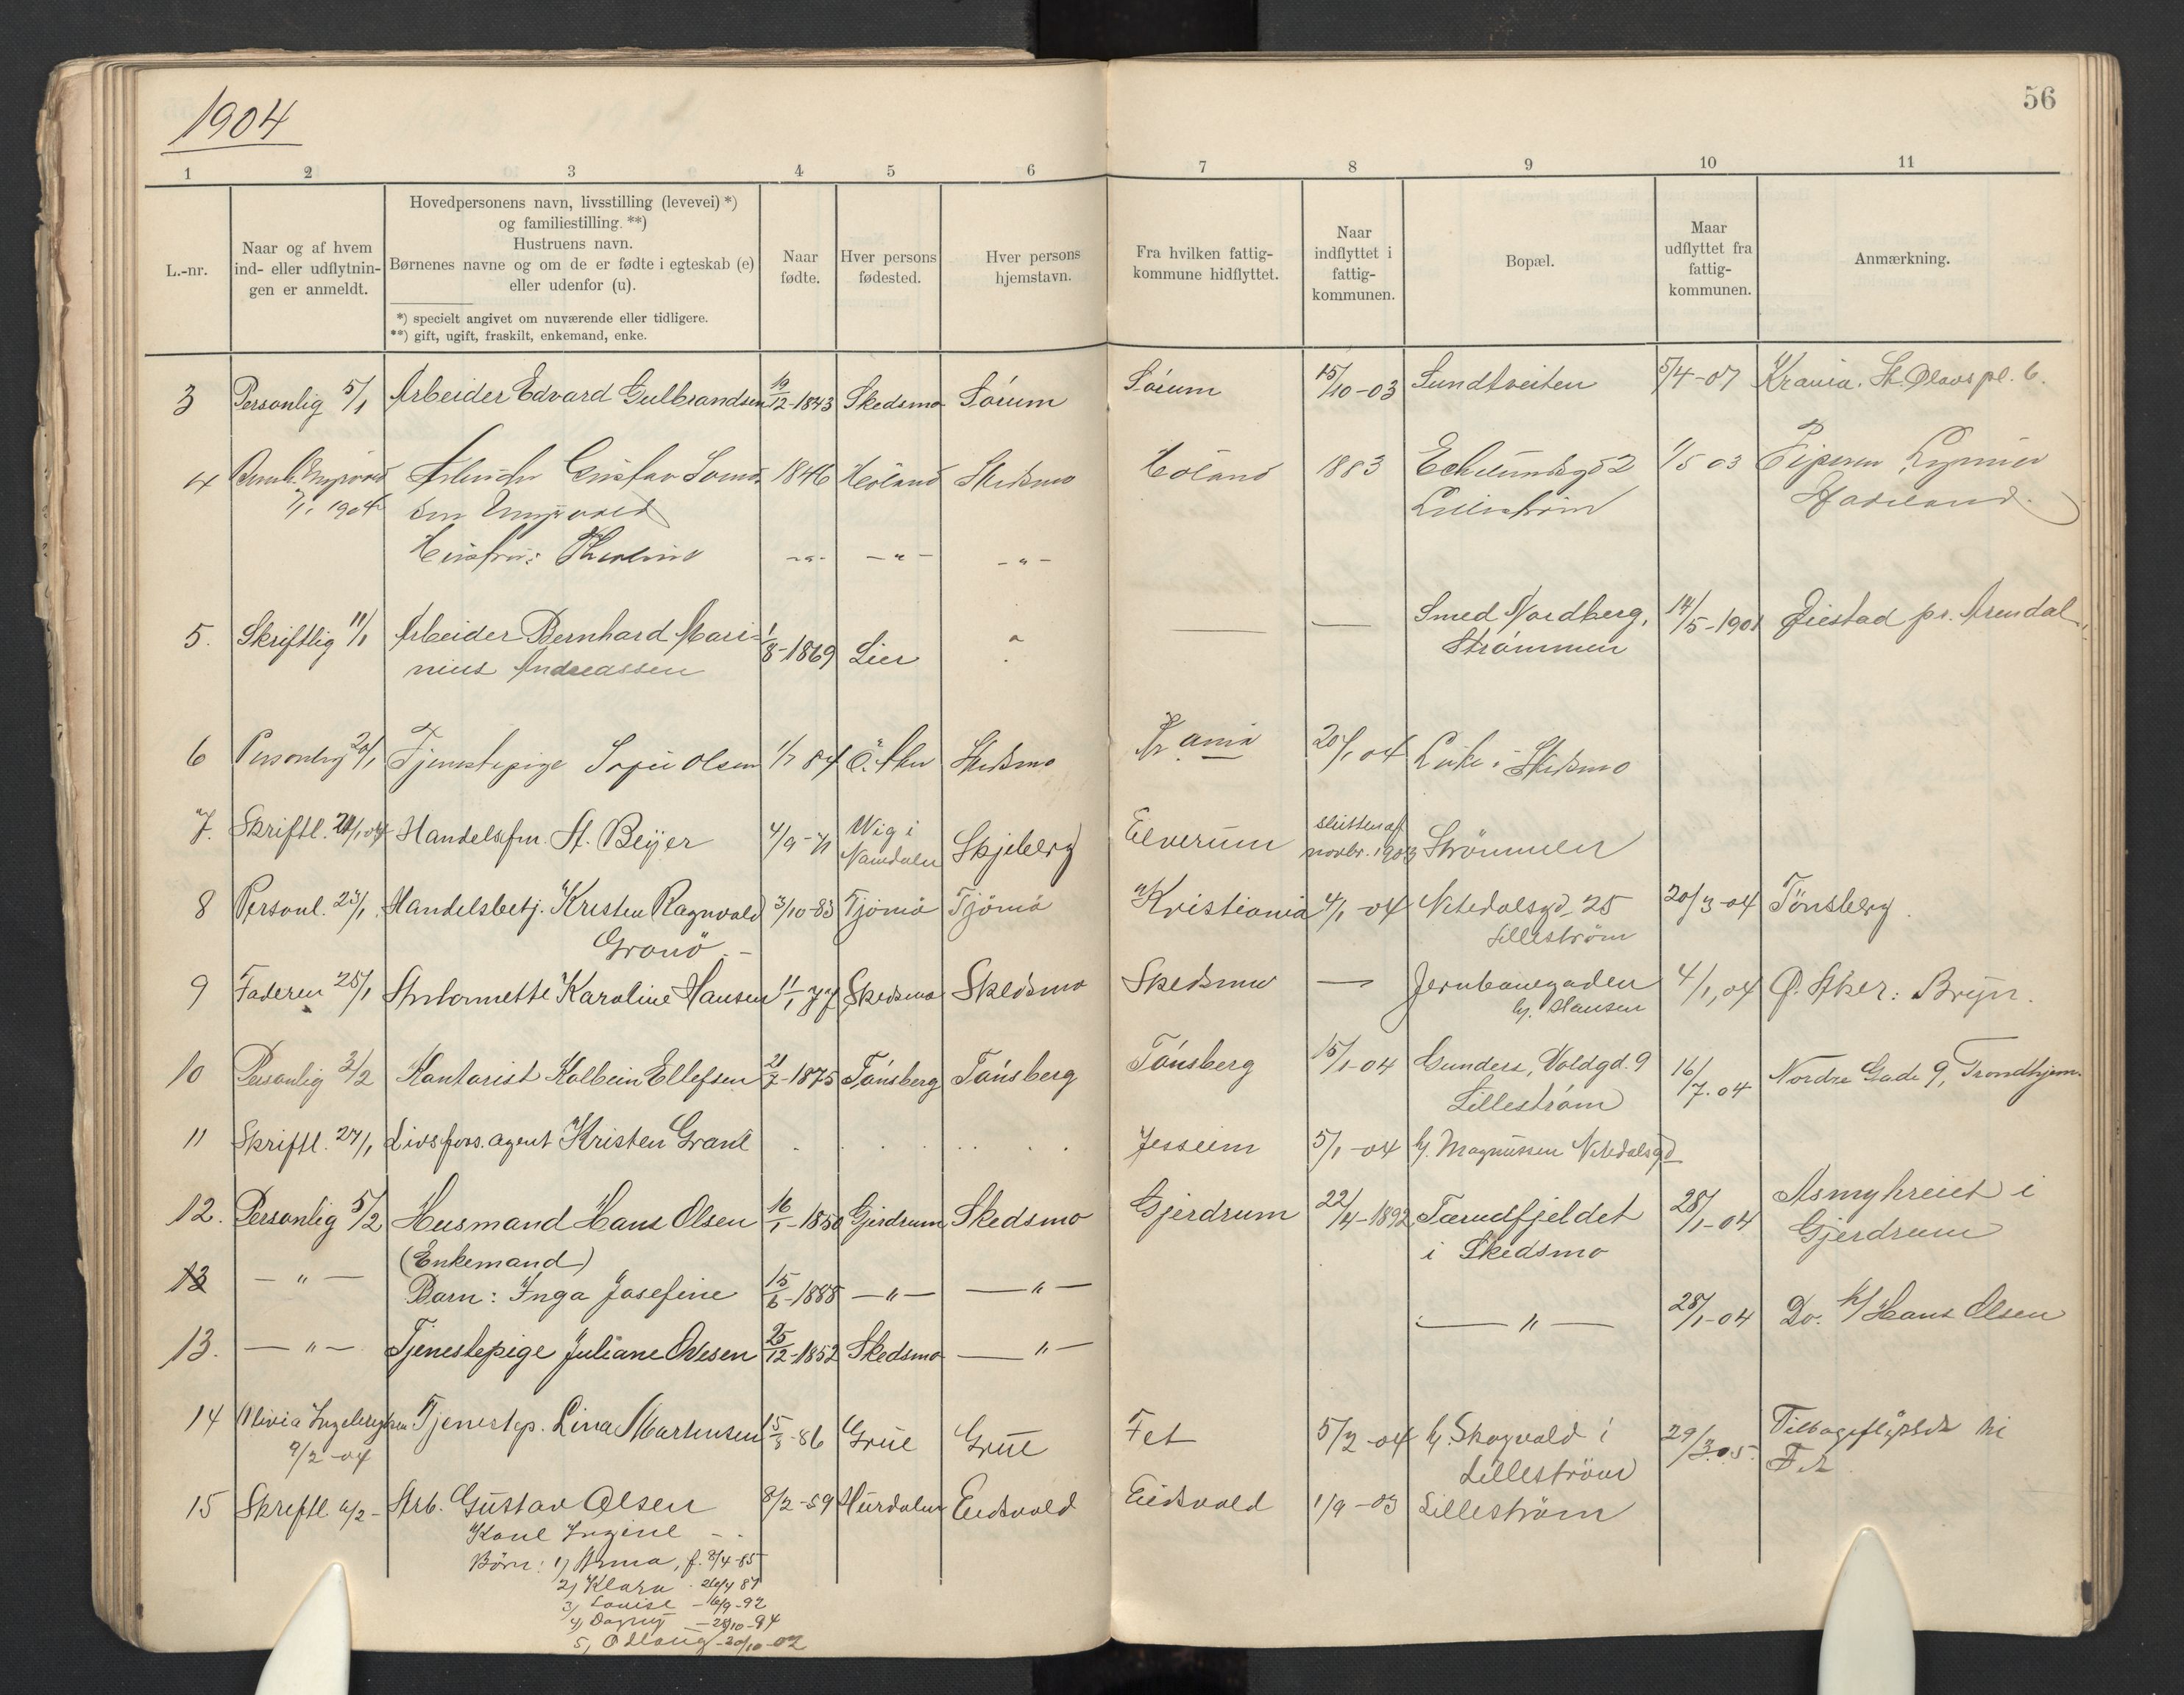 1904
56
1 2 3 4 5 6 7 8 9 10 11
L.-nr.
Naar og af hvem
ind- eller udflytnin-
gen er anmeldt.
Hovedpersonens navn, livsstilling (levevei) *)
og familiestilling. **)
Hustruens navn.
Børnenes navne og om de er fødte i egteskab (e)
eller udenfor (u).
*) specielt angivet om nuværende eller tidligere.
**) gift, ugift, fraskilt, enkemand, enke.
Naar
fødte.
Hver persons
fødested.
Hver persons
hjemstavn.
Fra hvilken fattig-
kommune hidflyttet.
Naar
indflyttet i
fattig-
kommunen.
Bopæl.
Maar
udflyttet fra
fattig-
kommunen.
Anmærkning.
3 Personlig 5/1 Arbeider Edvard Gulbrandsen 19/12-1843 Skedsmo Sórum Sórum 15/10-03 Sundtveiten 5/4-07 Krania. St. Olavs pl. 6.
4 1846 Höland Skedsmo Höland 1883 1/5 03
7/1 1904 Lilleström Hadeland.
Hustru: -"- -"- -"-
5. Skriftlig 11/1 Arbeider Bernhard Mari- 1/8-1869 Lier " — — Smed Nordberg, 14/5-1901 Øiestad pr. Arendal.
nius Andreassen Strómmen
6 Personlig 20/1 Tjenestepige Olsen 1/7 84 Ö. Aker Skedsmo Kr.ania 20/1 04 i Skedsmo
7. Skriftl. 21/1 04 Handelsfm. A. Beijer 4/9-71 Wig i Skjeberg Elverum slutten af Strömmen
Namdalen novbr. 1903
8 Personl. 23/1 Handelsbetj. Kristen Ragnvald 3/10-83 Tjömö Tjömö Kristiania 4/1-04 Nitedalsgd. 25 20/3-04 Tönsberg.
Granö - Lilleström
9 Faderen 25/1 Karoline Hansen 11/1 77 Skedsmo Skedsmo Skedsmo — Jernbanegaden 4/1,04 Ø. Aker: Bryn.
hj. Hansen
10 Personlig 3/2 Kontorist Kolbein Ellefsen 21/7-1875 Tónsberg Tónsberg Tónsberg 15/1-04 Gunders, Voldgd. 9 16/7.04 Nordre Gade 9, Trondhjem.
Lilleström
11 Skriftl. 27/1 Livsfors.agent Kristen Grane . . . . . . Jesseim 5/1-04 hj. Magnussen Nitedalsgd
12. Personlig 5/2 Husmand Hans Olsen 16/1-1850 Gjerdrum Skedsmo Gjerdrum 22/4-1892 Tærudfjeldet 28/1-04 Asmyhreiet i
(Enkemand) i Skedsmo Gjerdrum
13 — " — Barn: Inga Josefine 15/6-1888 —"— —"— —"— 28/1-04 Do. h/ Hans Olsen
13. — " — Tjenestepige Juliane Olsen 25/12-1852 Skedsmo —"—
14 Olivia Tjenestep. Lina Martinsen 15/3-86 Grue Grue Fet 5/2-04 hj. Skogvold i 29/3.05. Tilbageflyttet til
9/2-04 Lilleström Fet
15 Skriftl 6/2- Arb. Gustav Olsen 8/2-59 Hurdalen Eidsvold Eidsvold 1/9-03 Lilleström
Kone Ingine - -
Börn: 1) Anna, f. 8/4-85
2) Klara - 26/4 87
3) Louise - 16/9-92
4) Dagny - 28/10-94
5) Odlaug - 20/10-02